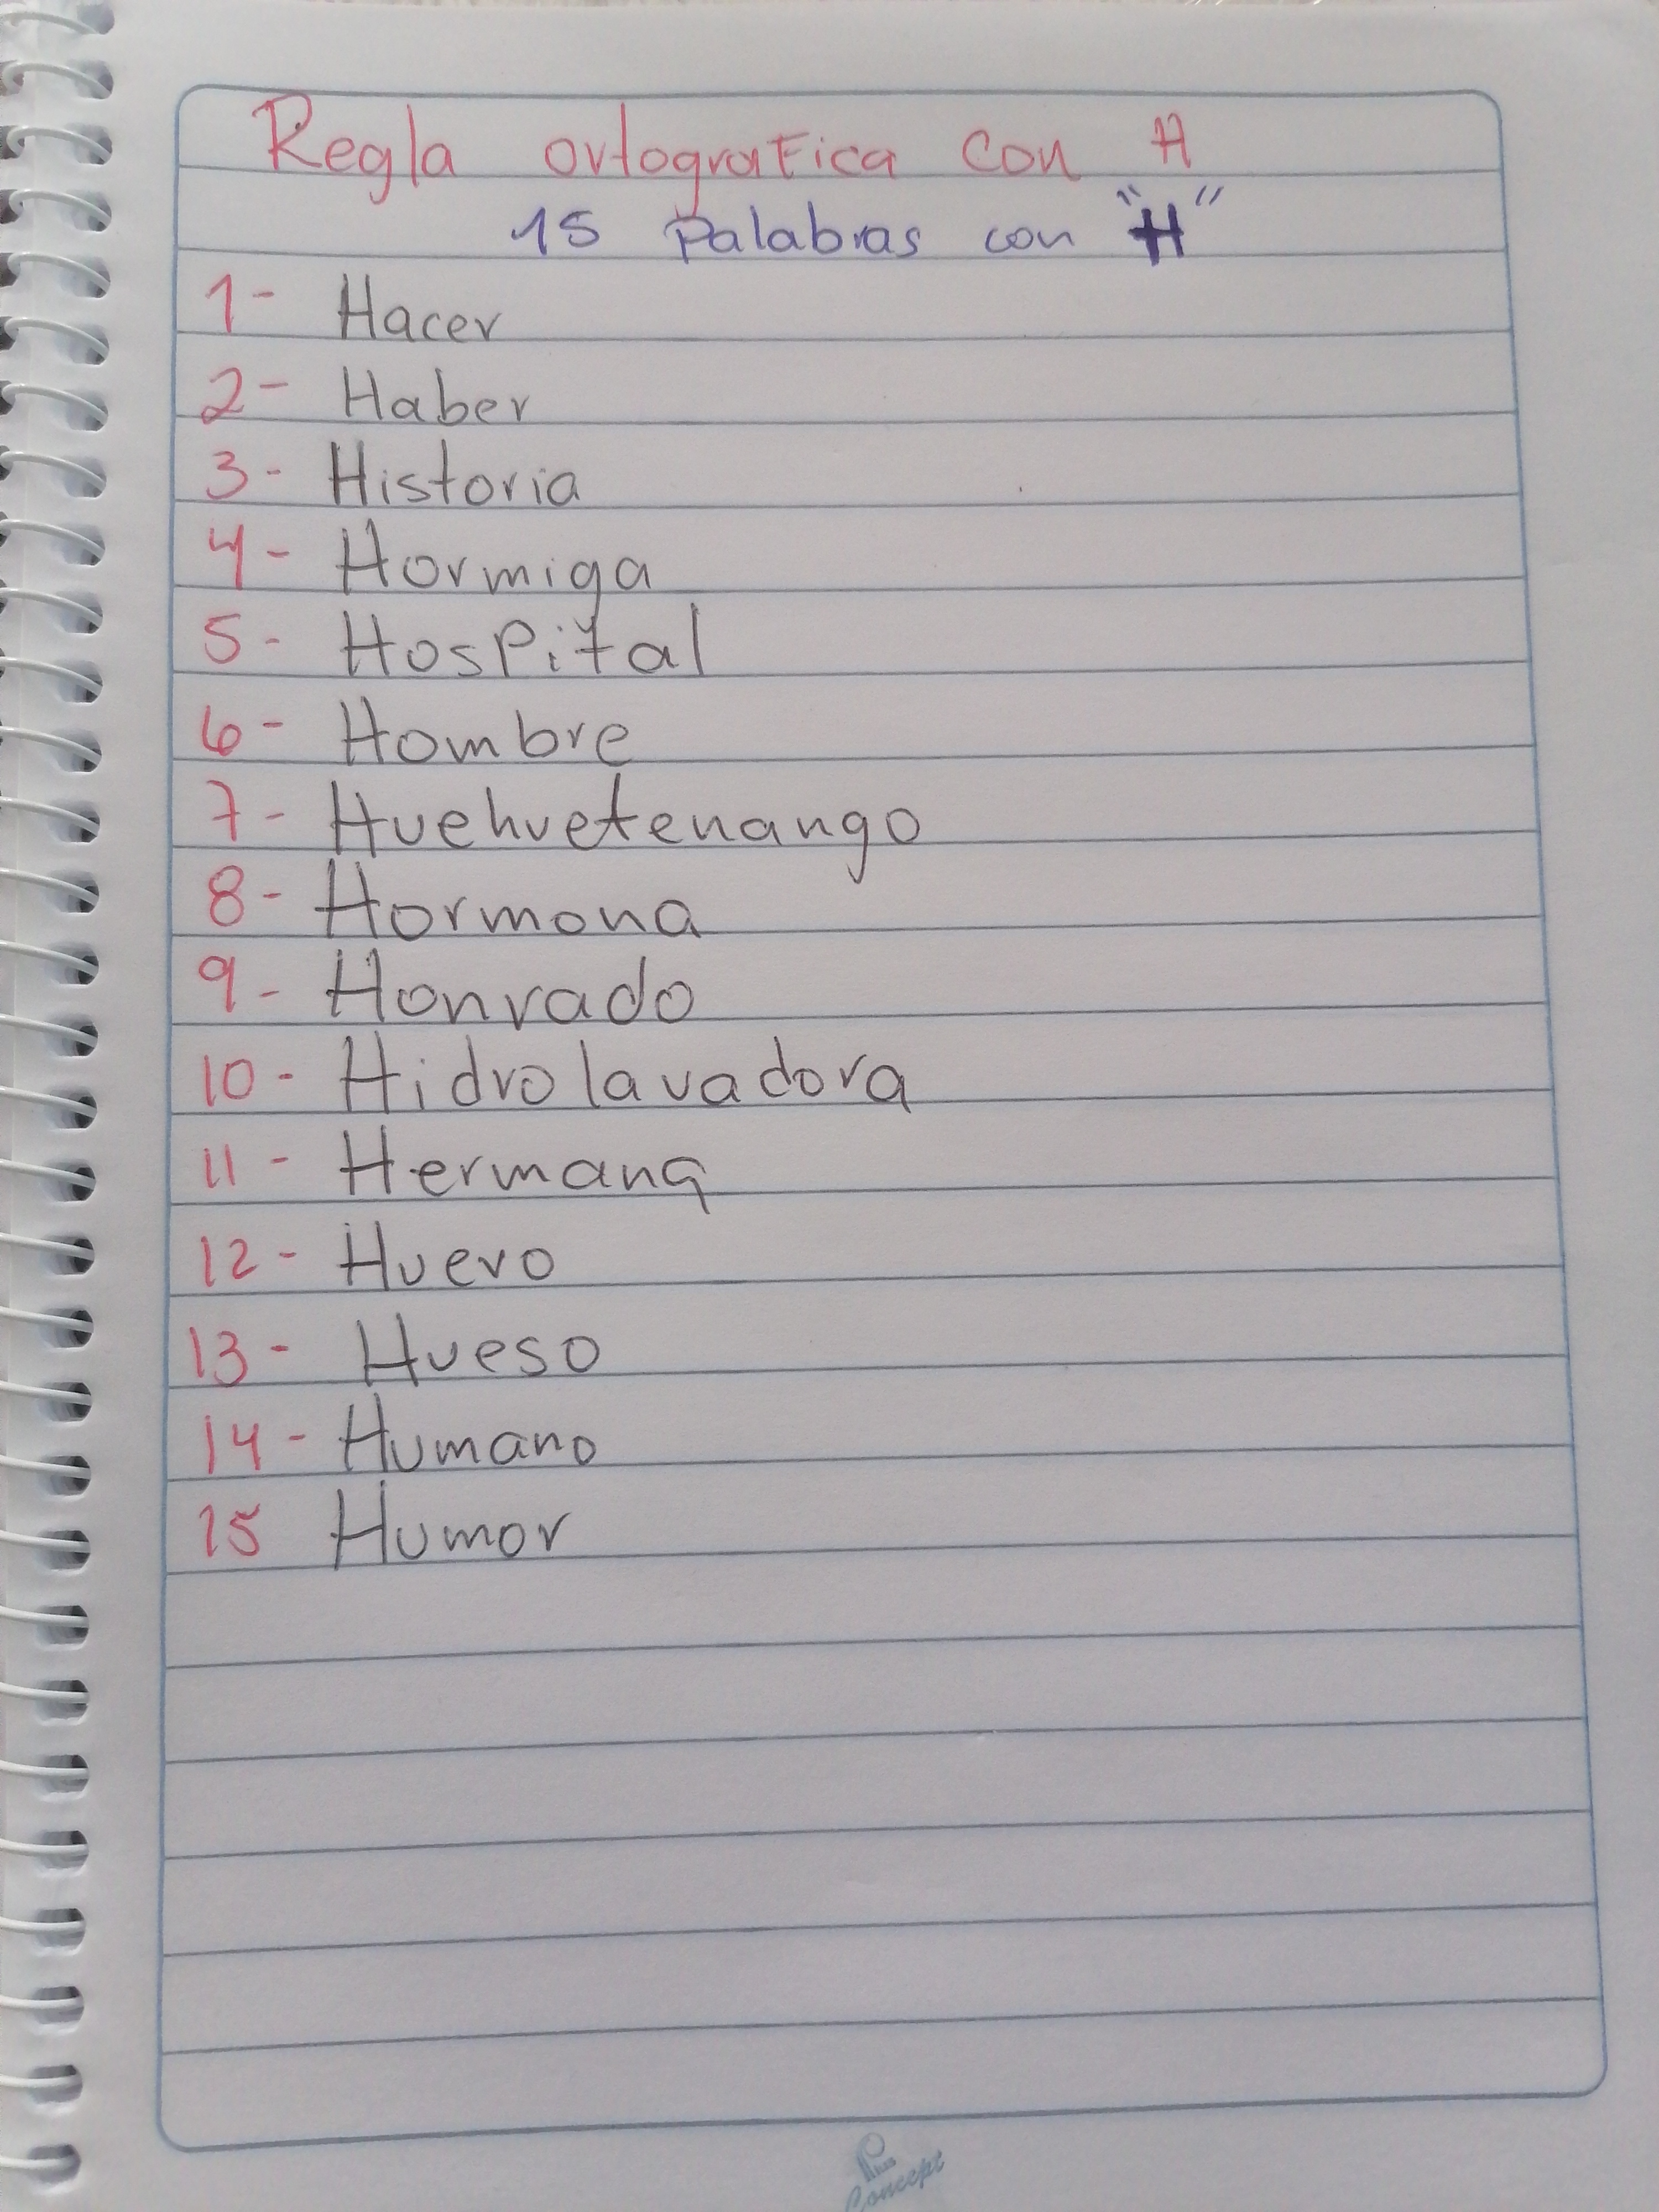 Regla ortografica con H
15 palabras con "H"
1- Hacer
2- Haber
3- Historia
4- Hormiga
5- Hospital
6- Hombre
7- Huehuetenango
8- Hormona
9- Honrado
10- Hidrolavadora
11- Hermana
12- Huevo
13- Hueso
14- Humano
15 Humor
Plus
Concept